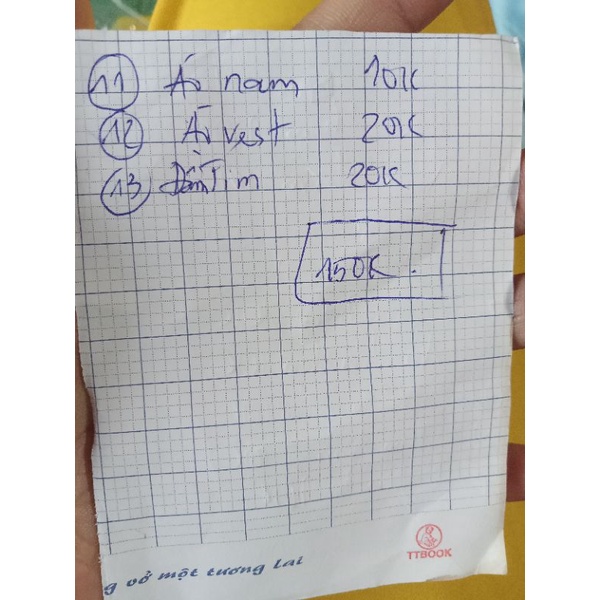 11 Áo nam 10K
12 Áo vest 20K
13 Đầm Tim 20K
150K.
TTBOOK
g vở một tương lai